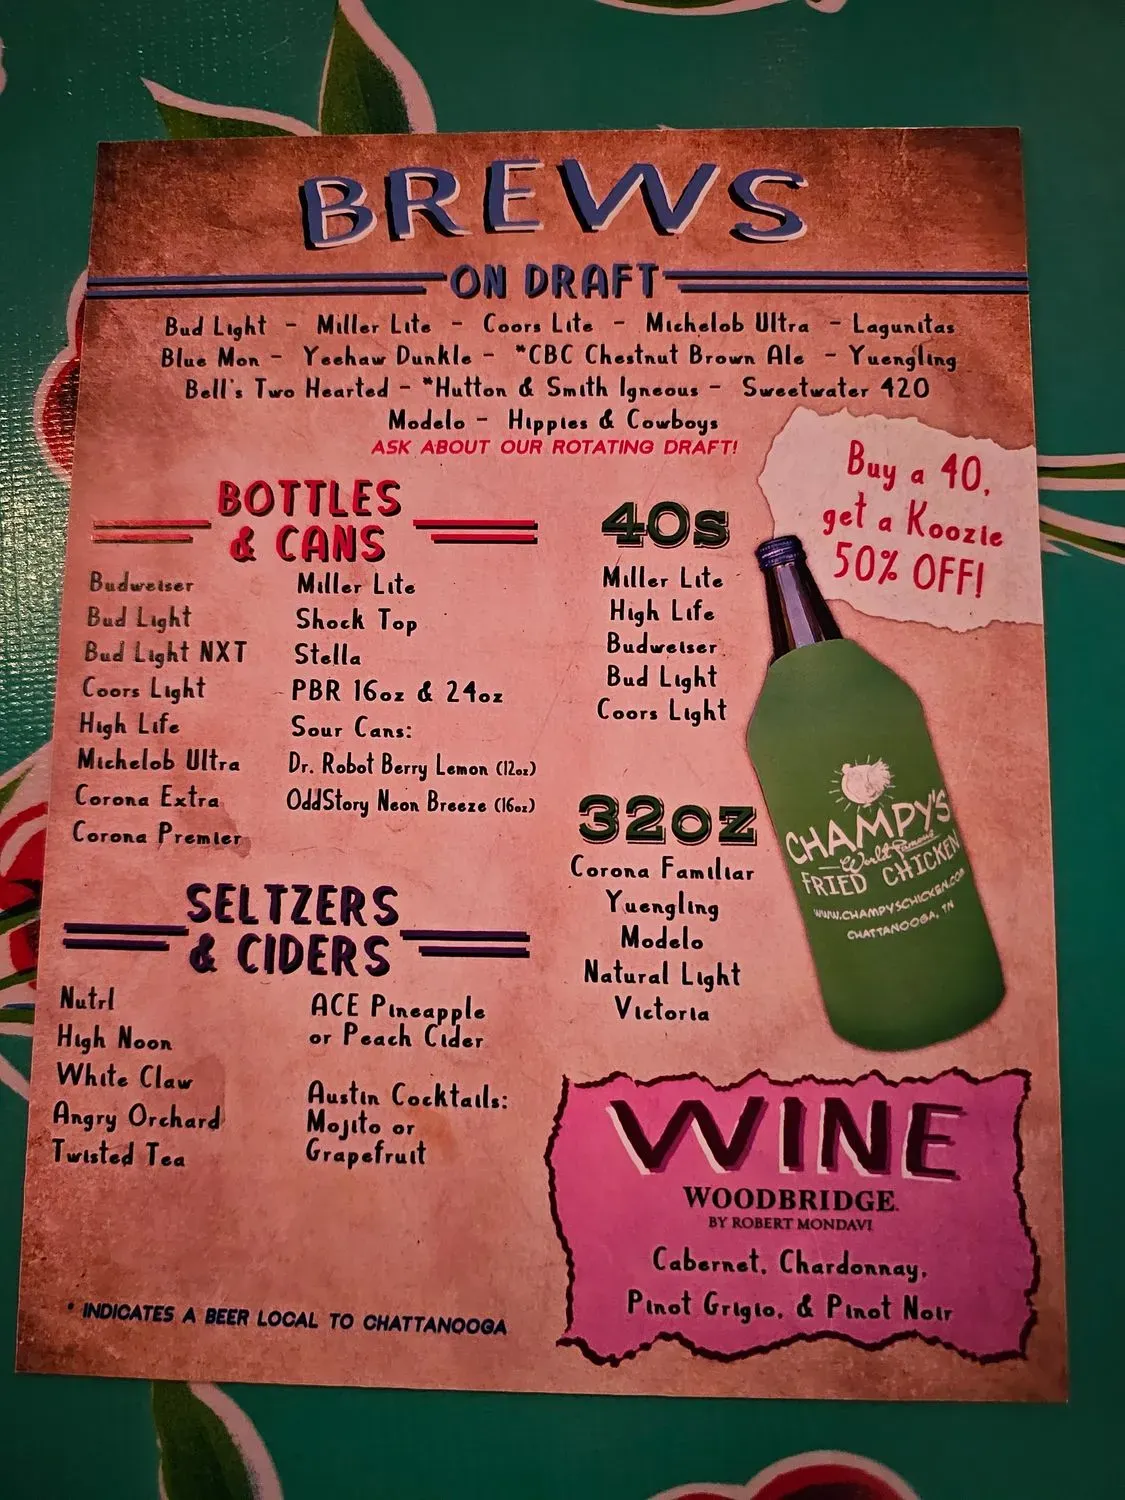 BREWS
ON DRAFT
Bud Light - Miller Lite - Coors Lite - Michelob Ultra - Lagunitas
Blue Mon - Yeehaw Dunkle - *CBC Chestnut Brown Ale - Yuengling
Bell's Two Hearted - *Hutton & Smith Igneous - Sweetwater 420
Modelo - Hippies & Cowboys
ASK ABOUT OUR ROTATING DRAFT!
BOTTLES
& CANS
Budweiser
Bud Light
Bud Light NXT
Coors Light
High Life
Michelob Ultra
Corona Extra
Corona Premier
Miller Lite
Shock Top
Stella
PBR 16oz & 24oz
Sour Cans:
Dr. Robot Berry Lemon (12oz)
OddStory Neon Breeze (16oz)
40s
Miller Lite
High Life
Budweiser
Bud Light
Coors Light
Buy a 40,
get a Koozie
50% OFF!
32oz
Corona Familiar
Yuengling
Modelo
Natural Light
Victoria
CHAMPY'S
World Famous
FRIED CHICKEN
WWW.CHAMPYSCHICKEN.COM
CHATTANOOGA, TN
SELTZERS
& CIDERS
Nutrl
High Noon
White Claw
Angry Orchard
Twisted Tea
ACE Pineapple
or Peach Cider
Austin Cocktails:
Mojito or
Grapefruit
* INDICATES A BEER LOCAL TO CHATTANOOGA
WINE
WOODBRIDGE
BY ROBERT MONDAVI
Cabernet, Chardonnay,
Pinot Grigio, & Pinot Noir